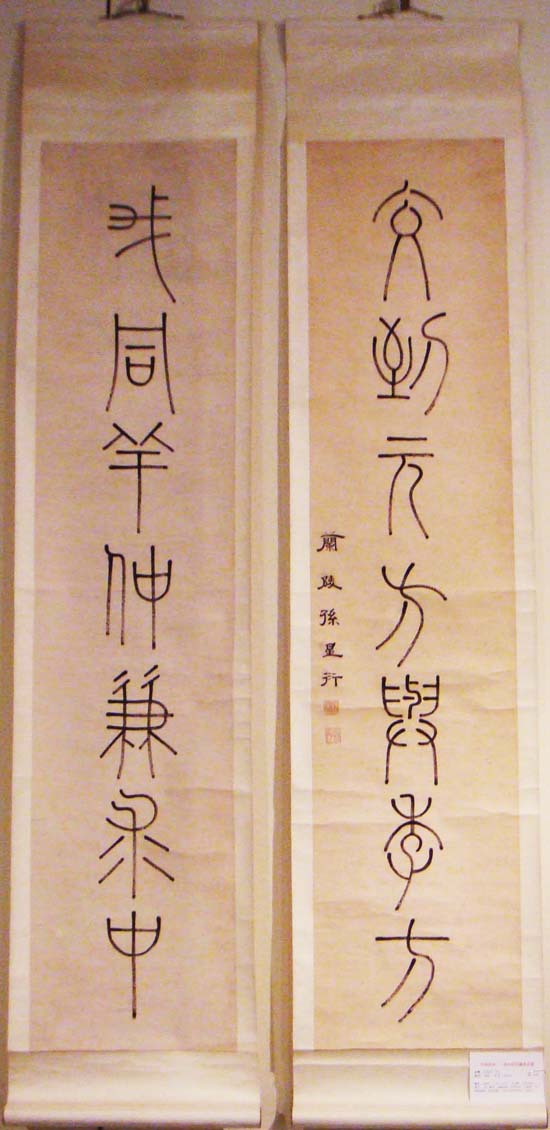 交到元方與季方
蘭陵孫星衍
同羊仲兼求中